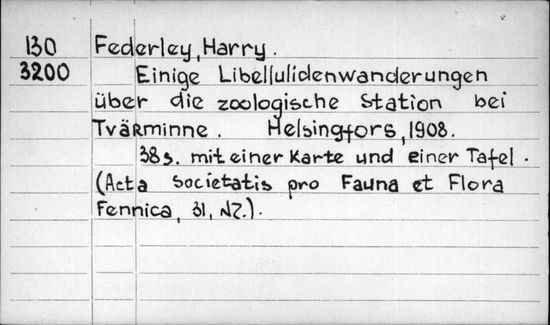 130 Federley, Harry.
3200 Einige Libellulidenwanderungen
über die zoologische Station bei
Tvärminne. Helsingfors, 1908.
38s. mit einer Karte und einer Tafel.
(Acta Societatis pro Fauna et Flora
Fennica, 31, N7.).